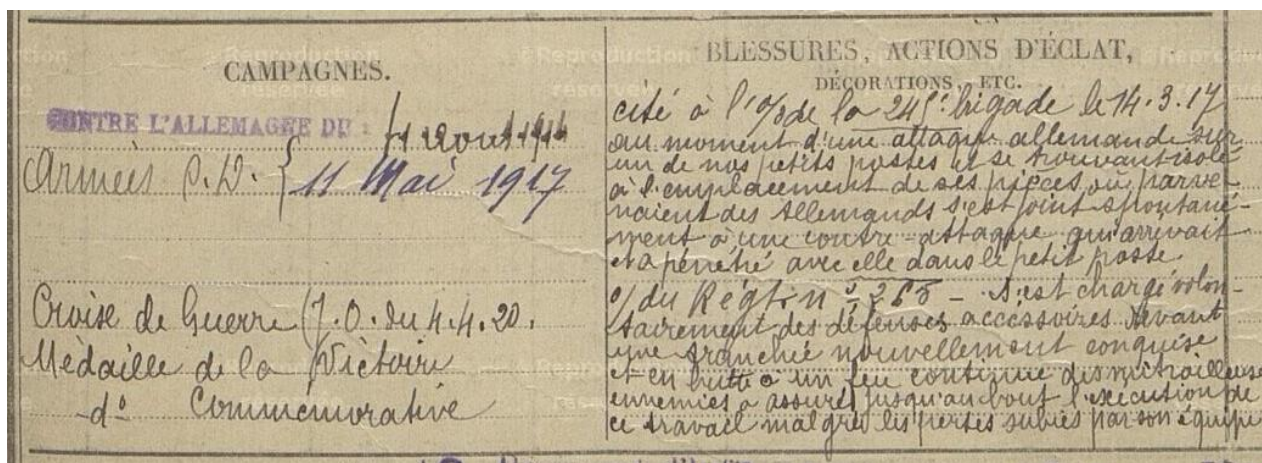 CAMPAGNES.
CONTRE L'ALLEMAGNE DU :
Août 1914
Armées
11 Mai 1917
Croise de Guerre (J.O. du 4.4.20.
Médaille de la Victoire
-d° Commémorative
BLESSURES, ACTIONS D'ÉCLAT,
DÉCORATIONS, ETC.
cité à l'o/de la 245e bigade le 14.3.17
au moment d'une attaque allemande sur
un de nos petits postes et se trouvant isolé
à l'emplacement de ses pièces où parve-
naient des Allemands s'est joint spontané-
ment à une contre-attaque qui arrivait
et a pénétré avec elle dans le petit poste
o/du Régt n° 265 - S'est chargé volon-
tairement des défenses accessoires devant
une tranchée nouvellement conquise
et en butte à un feu continue des mitrailleuse
ennemies a assuré jusqu'au bout l'exécution de
ce travail malgré les pertes subies par son équipe